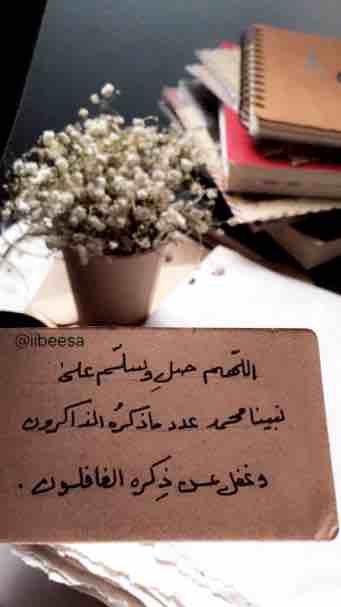 @iibeesa
اللّهم صلِ وسلّم على
نبينا محمد عدد ماذكرهُ الذاكرون
وغفل عن ذِكره الغافلون .